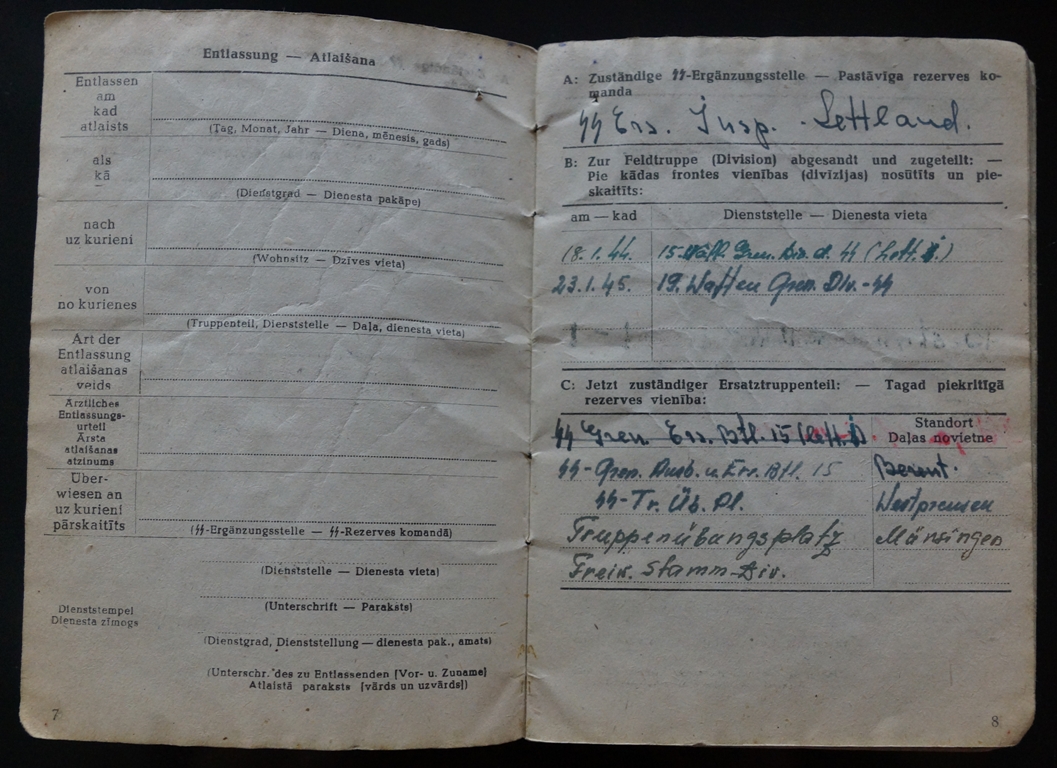 Entlassung — Atlaišana
Entlassen
am
kad
atlaists
(Tag, Monat, Jahr — Diena, mēnesis, gads)
als
kā
(Dienstgrad — Dienesta pakāpe)
nach
uz kurieni
(Wohnsitz — Dzīves vieta)
von
no kurienes
(Truppenteil, Dienststelle — Daļa, dienesta vieta)
Art der
Entlassung
atlaišanas
veids
Ärztliches
Entlassungs-
urteil
Ārsta
atlaišanas
atzinums
Über-
wiesen an
uz kurieni
pārskaitīts
(ᛋᛋ-Ergänzungsstelle — ᛋᛋ-Rezerves komandā)
(Dienststelle — Dienesta vieta)
(Unterschrift — Paraksts)
Dienststempel
Dienesta zīmogs
(Dienstgrad, Dienststellung — dienesta pak., amats)
(Unterschr. des zu Entlassenden [Vor- u. Zuname]
Atlaistā paraksts [vārds un uzvārds])
7
A: Zuständige ᛋᛋ-Ergänzungsstelle — Pastāvīga rezerves ko-
manda
ᛋᛋ Ers. Insp. - Lettland.
B: Zur Feldtruppe (Division) abgesandt und zugeteilt: —
Pie kādas frontes vienības (divīzijas) nosūtīts un pie-
skaitīts:
am — kad Dienststelle — Dienesta vieta
18.1.44. 15. Waff. Gren. Div. d. ᛋᛋ (Lett.
23.1.45. 19. Waffen Gren. Div. - ᛋᛋ
C: Jetzt zuständiger Ersatztruppenteil: — Tagad piekritīgā
rezerves vienība:
Standort
Daļas novietne
ᛋᛋ Gren. Ers. Btl. 15 (Lett.
ᛋᛋ - Gren. Ausb. u. Ers. Btl. 15 Berent.
ᛋᛋ - Tr. Üb. Pl. Westpreusen
Truppenübungsplatz Münsingen
Freiw. Stamm-Div.
8